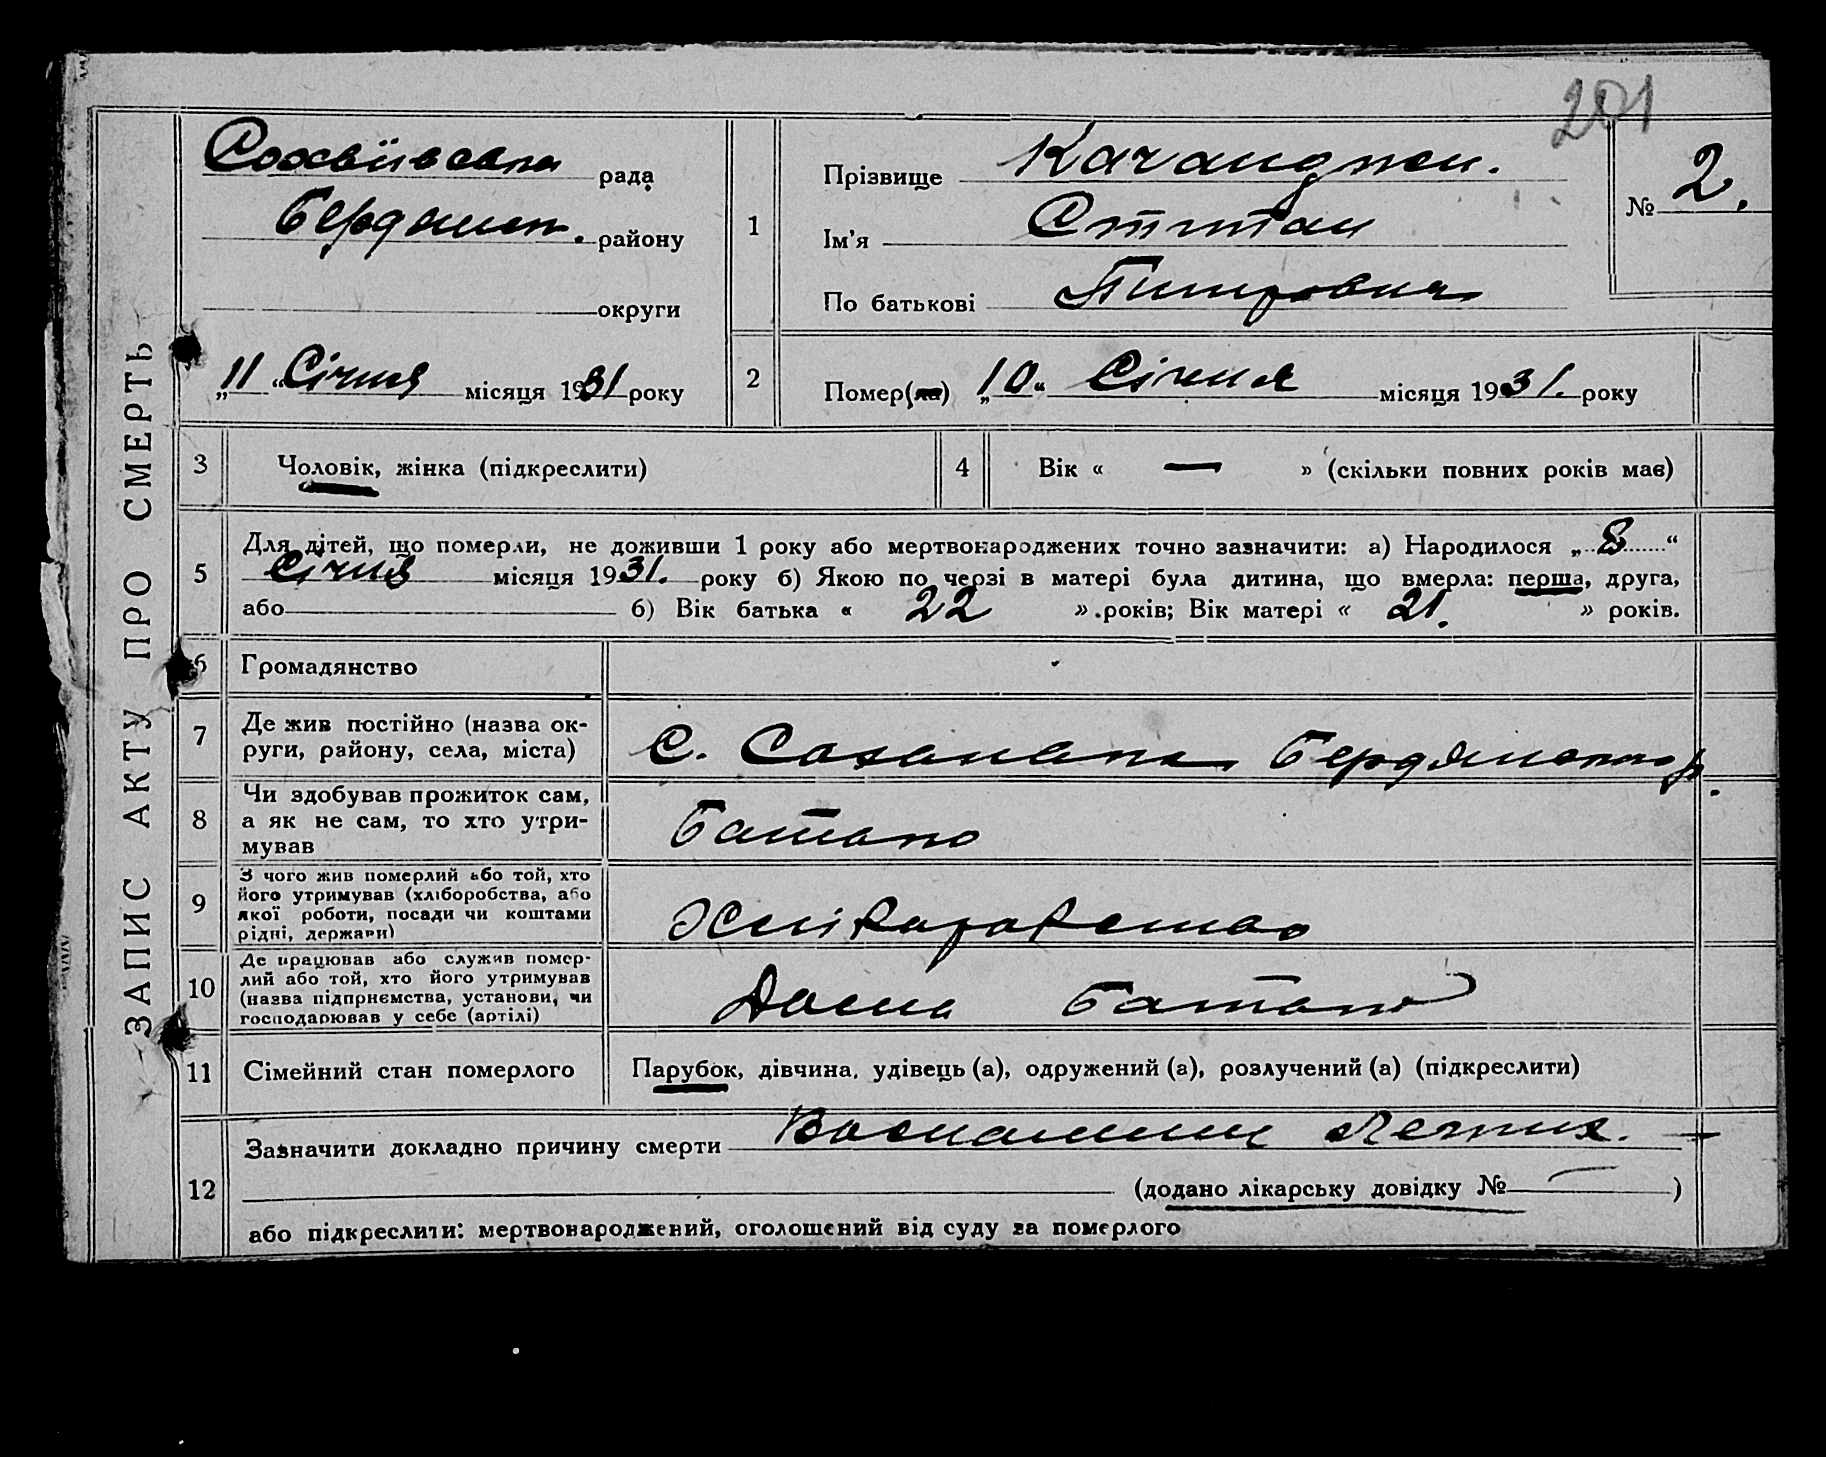 201
ЗАПИС АКТУ ПРО СМЕРТЬ
рада
Бердянск. району
округи
„11“ Січня місяця 1931 року
1
Прізвище Качанджи.
Ім'я Степан
По батькові Питрович
№ 2.
2
Помер(ла) „10“ Січня місяця 1931. року
3 Чоловік, жінка (підкреслити)
4 Вік « — » (скільки повних років має)
5 Для дітей, що померли, не доживши 1 року або мертвонароджених точно зазначити: а) Народилося „8“
Січня місяця 1931. року б) Якою по черзі в матері була дитина, що вмерла: перша, друга,
або б) Вік батька « 22 » років; Вік матері « 21. » років.
6 Громадянство
7 Де жив постійно (назва ок-
руги, району, села, міста)
С. Бердянского р.
8 Чи здобував прожиток сам,
а як не сам, то хто утри-
мував
Батько
9 З чого жив померлий або той, хто
його утримував (хліборобства, або
якої роботи, посади чи коштами
рідні, держави)
Хліборобство
10 Де працював або служив помер-
лий або той, хто його утримував
(назва підприємства, установи, чи
господарював у себе (артілі)
Дома Батько
11 Сімейний стан померлого
Парубок, дівчина, удівець (а), одружений (а), розлучений (а) (підкреслити)
12 Зазначити докладно причину смерти Воспаление легких. —
(додано лікарську довідку № — )
або підкреслити: мертвонароджений, оголошений від суду за померлого